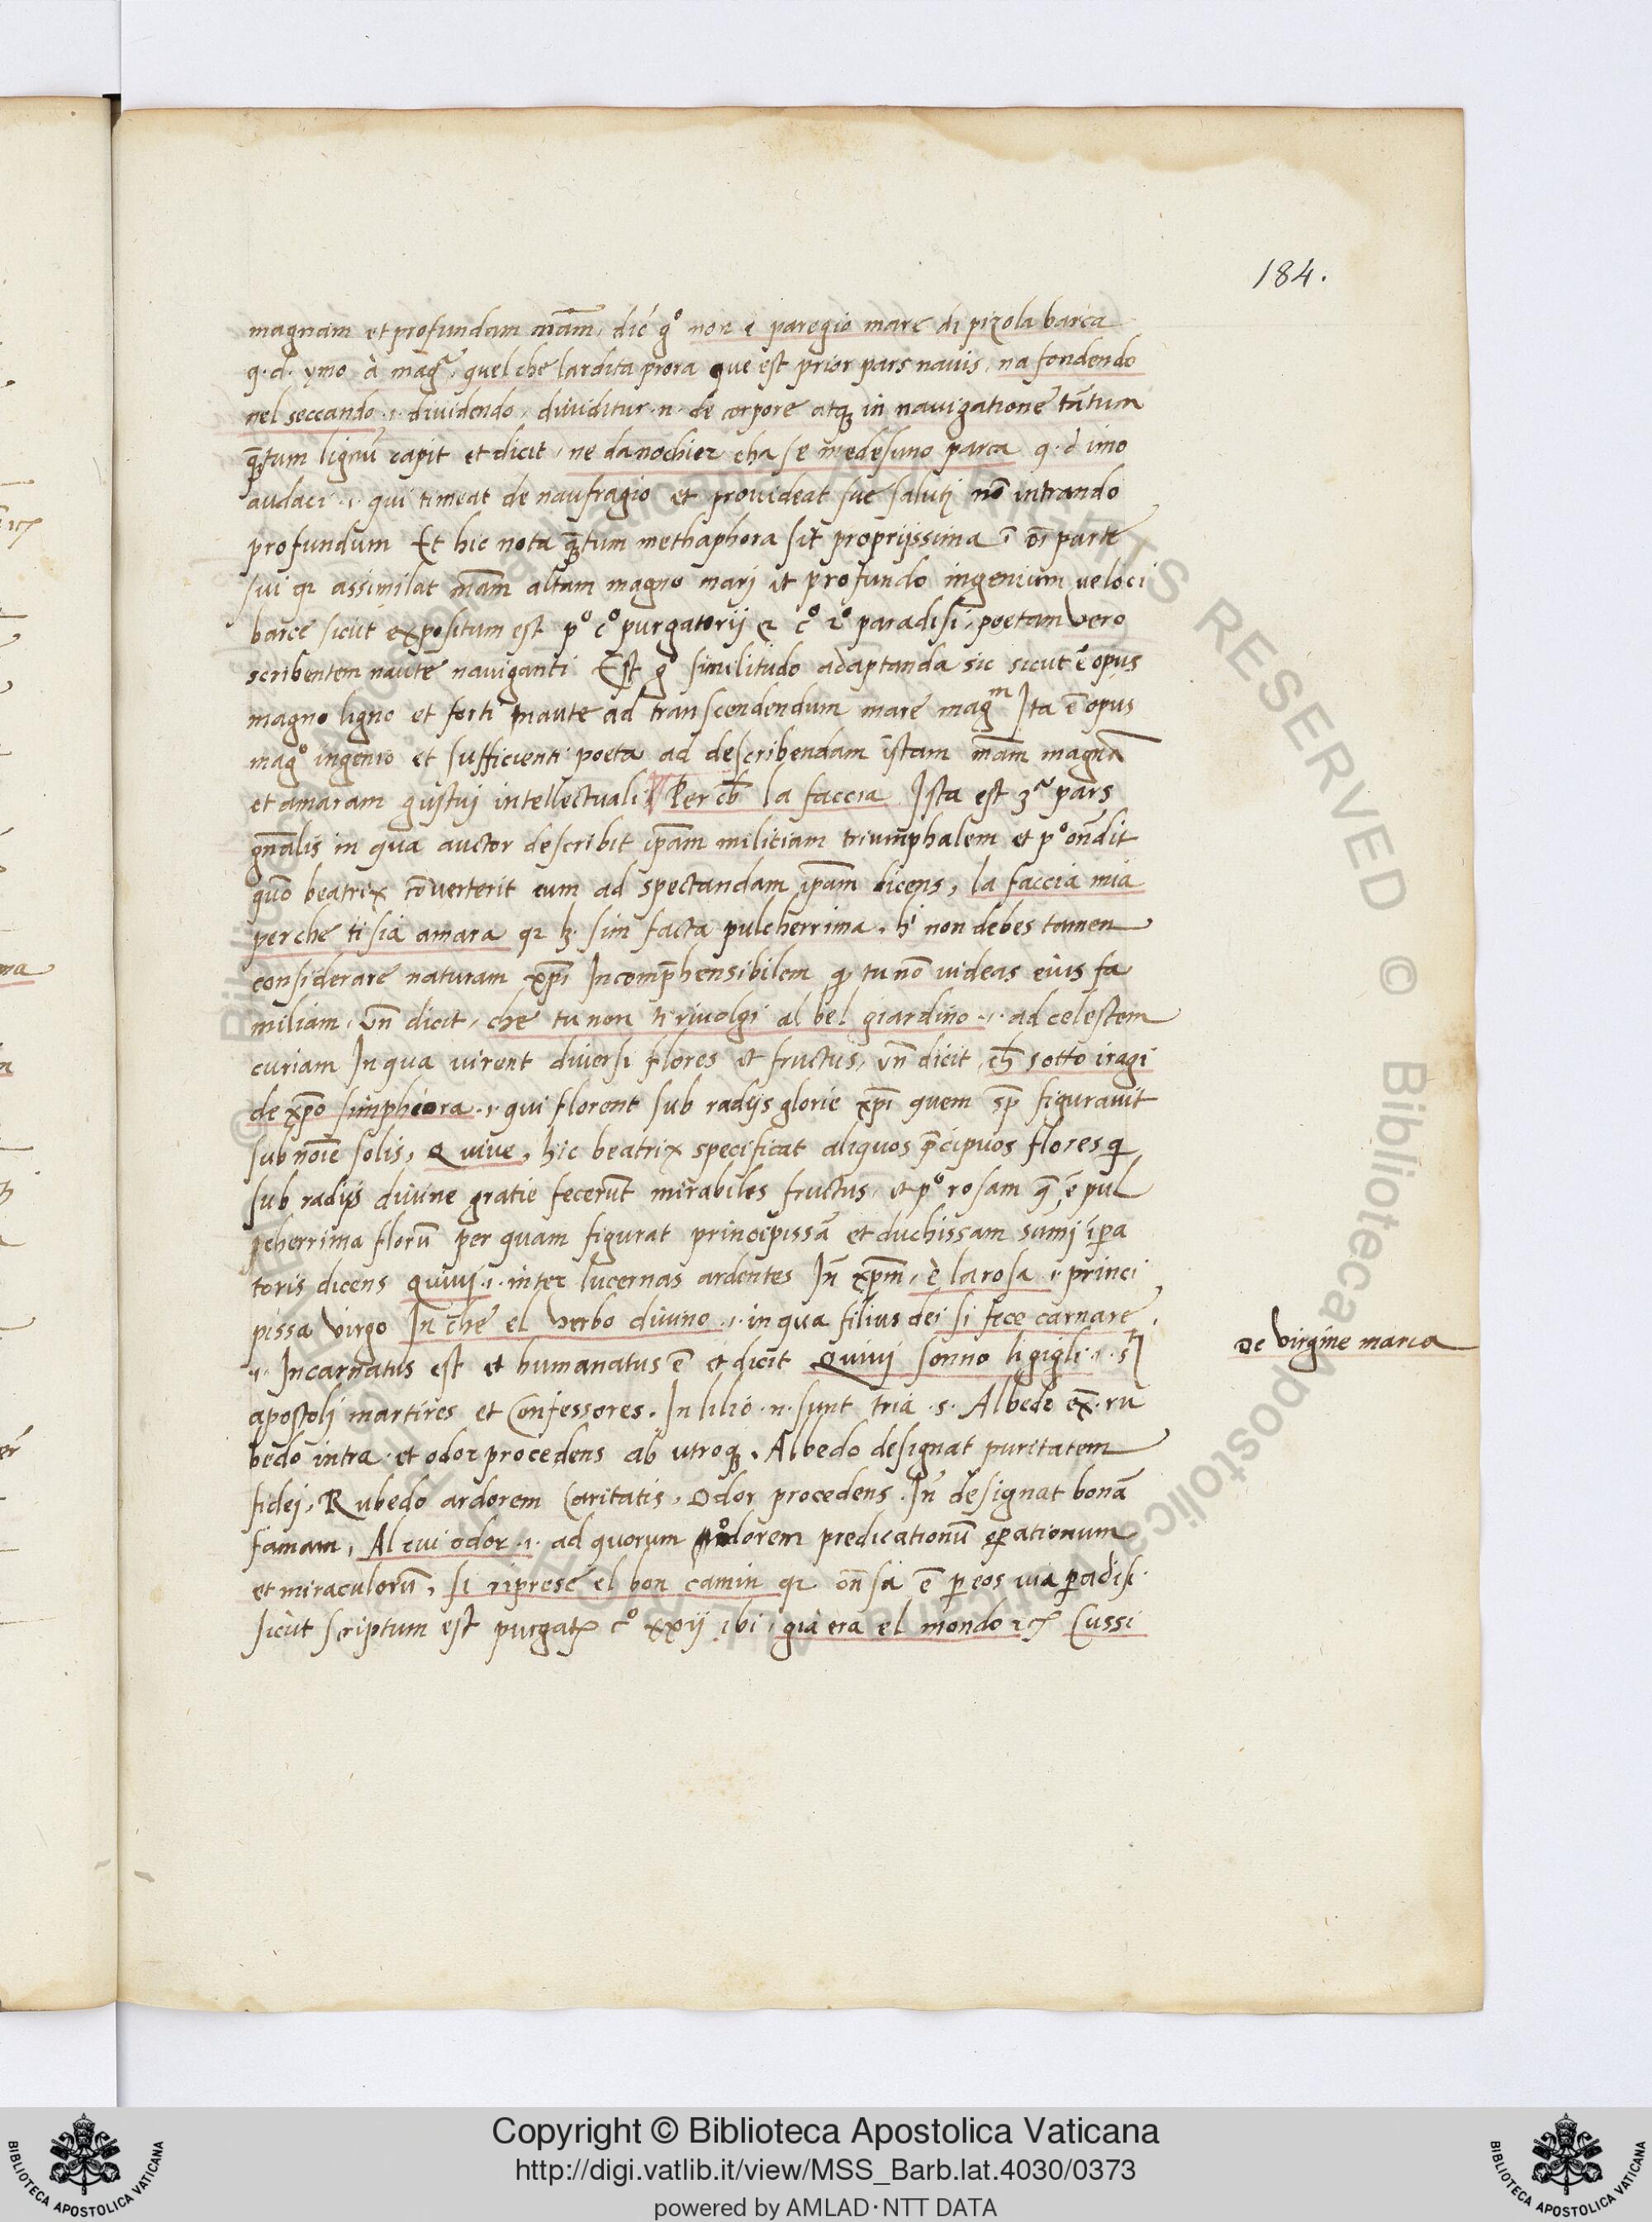 184.
magnam et profundam mãm, dic̃ gº non e paregio mare di pizola barca
q. d. ymo à magª, quel che lardita prora que est prior pars navis, na fondendo
nel seccando .i. dividendo, dividitur .n. de corpore atq; in navigatione tãtum
q̃tum lignũ capit et dicit, ne da nochier cha se medesimo parca q. d imo
audaci .i. qui timeat de naufragio et provideat sue salutj nõ intrando
profundum Et hic nota q̃tum methaphora sit propriissima ĩ oĩ parte
sui qr assimilat mãm altam magno marj et profundo ingenium veloci
barce sicut expositum est pº cº purgatorij et cº 2º paradisi, poetam vero
scribentem naute naviganti Est gº similitudo adaptanda sic sicut ẽ opus
magno ligno et forti naute ad transcendendum mare magᵐ Ita ẽ opus
magº ingenio et sufficienti poeta ad describendam istam mãm magnã
et amaram gustuj intellectuali Per ch̃ la faccia Ista est 3ª pars
gñalis in qua auctor describit ip̃am militiam triumphalem et pº oñdit
quõ beatrix cõverterit eum ad spectandam ip̃am dicens, la faccia mia
perche ti sia amara qr lz. sim facta pulcherrima. hⁱ non debes tamen
considerare naturam xp̃i Incomp̃hensibilem q tu nõ videas eius fa
miliam, Vñ dicit, che tu non ti rivolgi al bel giardino .i. ad celestem
curiam In qua virent diversi flores et fructus, vñ dicit, ch̃ sotto i ragi
de xp̃o simpheora .i. qui florent sub radijs glorie xp̃i quem sp̃ figuravit
sub noĩe solis, Q vive, hic beatrix specificat aliquos p̃cipuos flores q
sub radijs divine gratie fecerũt mirabiles fructus, et pº rosam q̃ ẽ pul
cherrima florũ per quam figurat principissã et duchissam sumi ĩpa
toris dicens Quivj .i. inter lucernas ardentes Iñ xp̃m, è la rosa .i. princi
pissa Virgo In che el Verbo divino .i. in qua filius dei si fece carnare,
.i. Incarnatus est et humanatus ẽ et dicit Quivj sonno li gigli .i.
apostolj martires et Confessores. In lilio .n. sunt tria .s. Albedo ex̃. ru
bedo intra. et odor procedens ab utroq;. Albedo designat puritatem
fidej, Rubedo ardorem Caritatis, Odor procedens .Iñ designat bonã
famam, Al cui odor .i. ad quorum odorem predicationũ operationum
et miraculorũ, si riprese el bon camin qr oñsa ẽ per eos via paradisi
sicut scriptum est purgatº cº xxij ibi, già era el mondo etc Cussi
De Virgine maria
Copyright © Biblioteca Apostolica Vaticana
http://digi.vatlib.it/view/MSS_Barb.lat.4030/0373
powered by AMLAD·NTT DATA